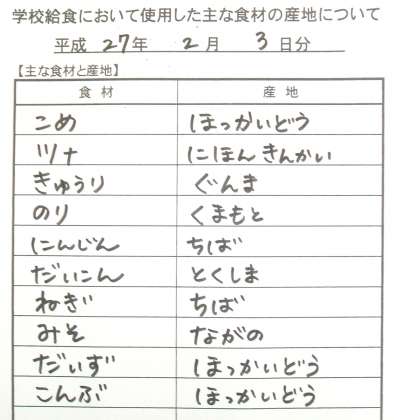 学校給食において使用した主な食材の産地について
平成 27年 2月 3日分
【主な食材と産地】
食材 産地
こめ ほっかいどう
ツナ にほんきんかい
きゅうり ぐんま
のり くまもと
にんじん ちば
だいこん とくしま
ねぎ ちば
みそ ながの
だいず ほっかいどう
こんぶ ほっかいどう